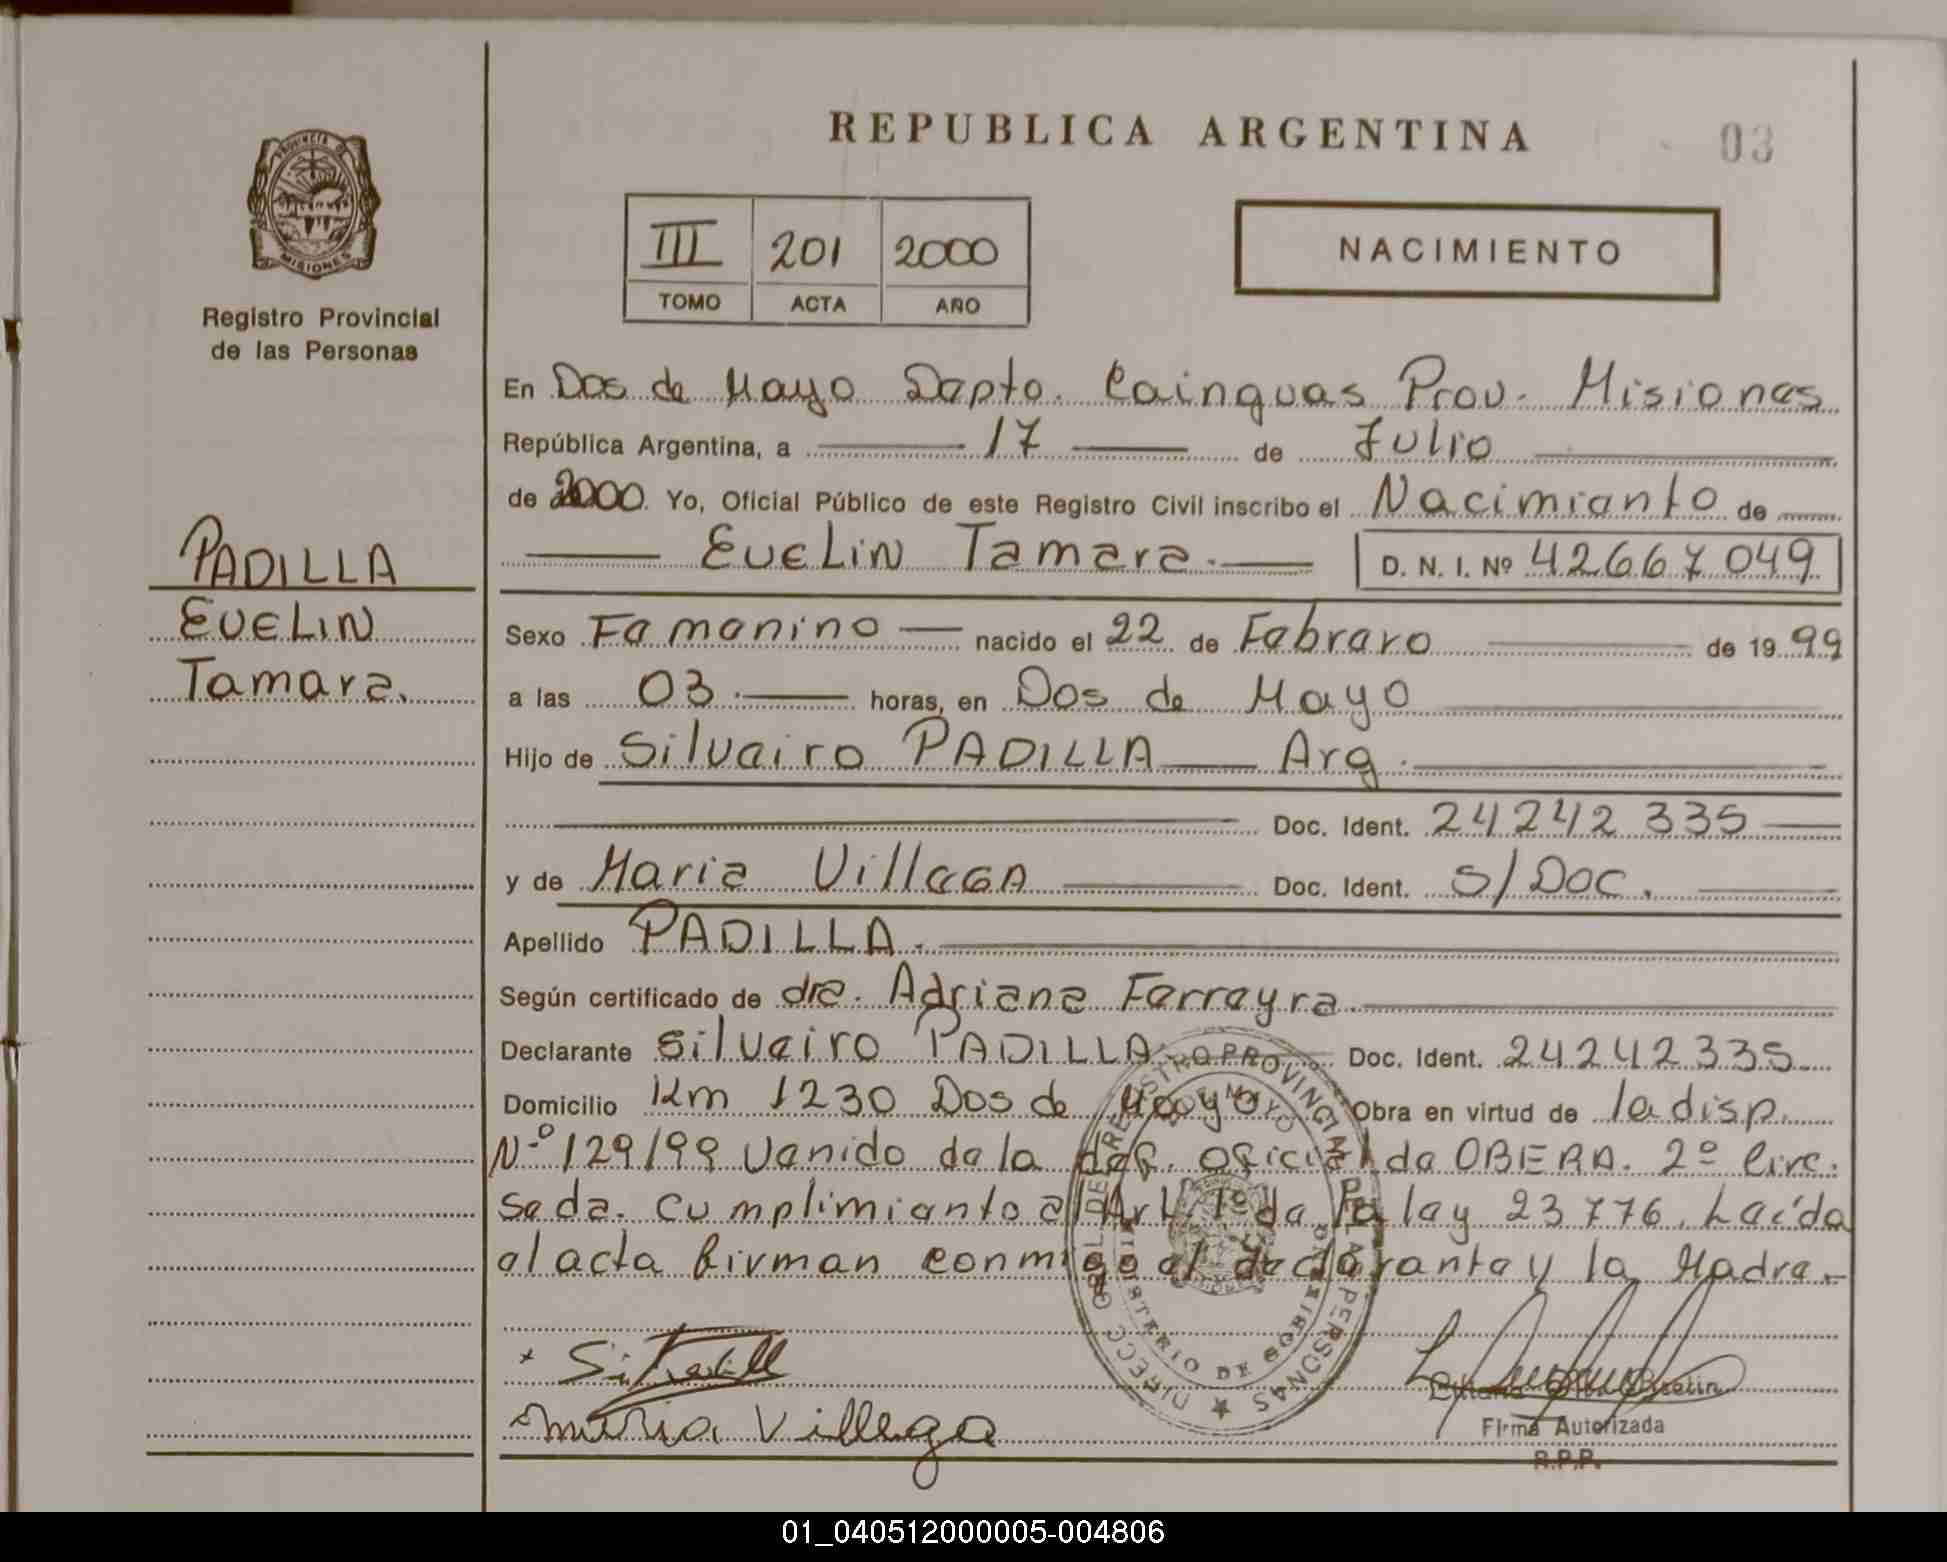 REPUBLICA ARGENTINA
03
PROVINCIA D
MISIONES
Registro Provincial
de las Personas
III 201 2000
TOMO ACTA AÑO
NACIMIENTO
En Dos de Mayo Depto. Cainguas Prov. Misiones
República Argentina, a 17 de Julio
de 2000. Yo, Oficial Público de este Registro Civil inscribo el Nacimiento de
Evelin Tamara. D. N. I. Nº 42667049
PADILLA
Evelin
Tamara.
Sexo Femenino nacido el 22 de Febrero de 1999
a las 03. horas, en Dos de Mayo
Hijo de Silveiro PADILLA Arg.
Doc. Ident. 24242335
y de Maria Villega Doc. Ident. s/Doc.
Apellido PADILLA.
Según certificado de dra. Adriana Ferreyra.
Declarante Silveiro PADILLA Doc. Ident. 24242335
Domicilio Km 1230 Dos de Mayo Obra en virtud de la disp.
Nº 129/99 venido de la def. oficial de OBERA. 2º Circ.
seda. cumplimiento al Art. 1º de la ley 23776. Leída
el acta firman conmigo el declarante y la Madre.
DIRECC. GRAL. DE REGISTRO PROVINCIAL DE LAS PERSONAS
DOS DE MAYO
MINISTERIO DE GOBIERNO
maria Villega
Firma Autorizada
R.P.P.
01_040512000005-004806